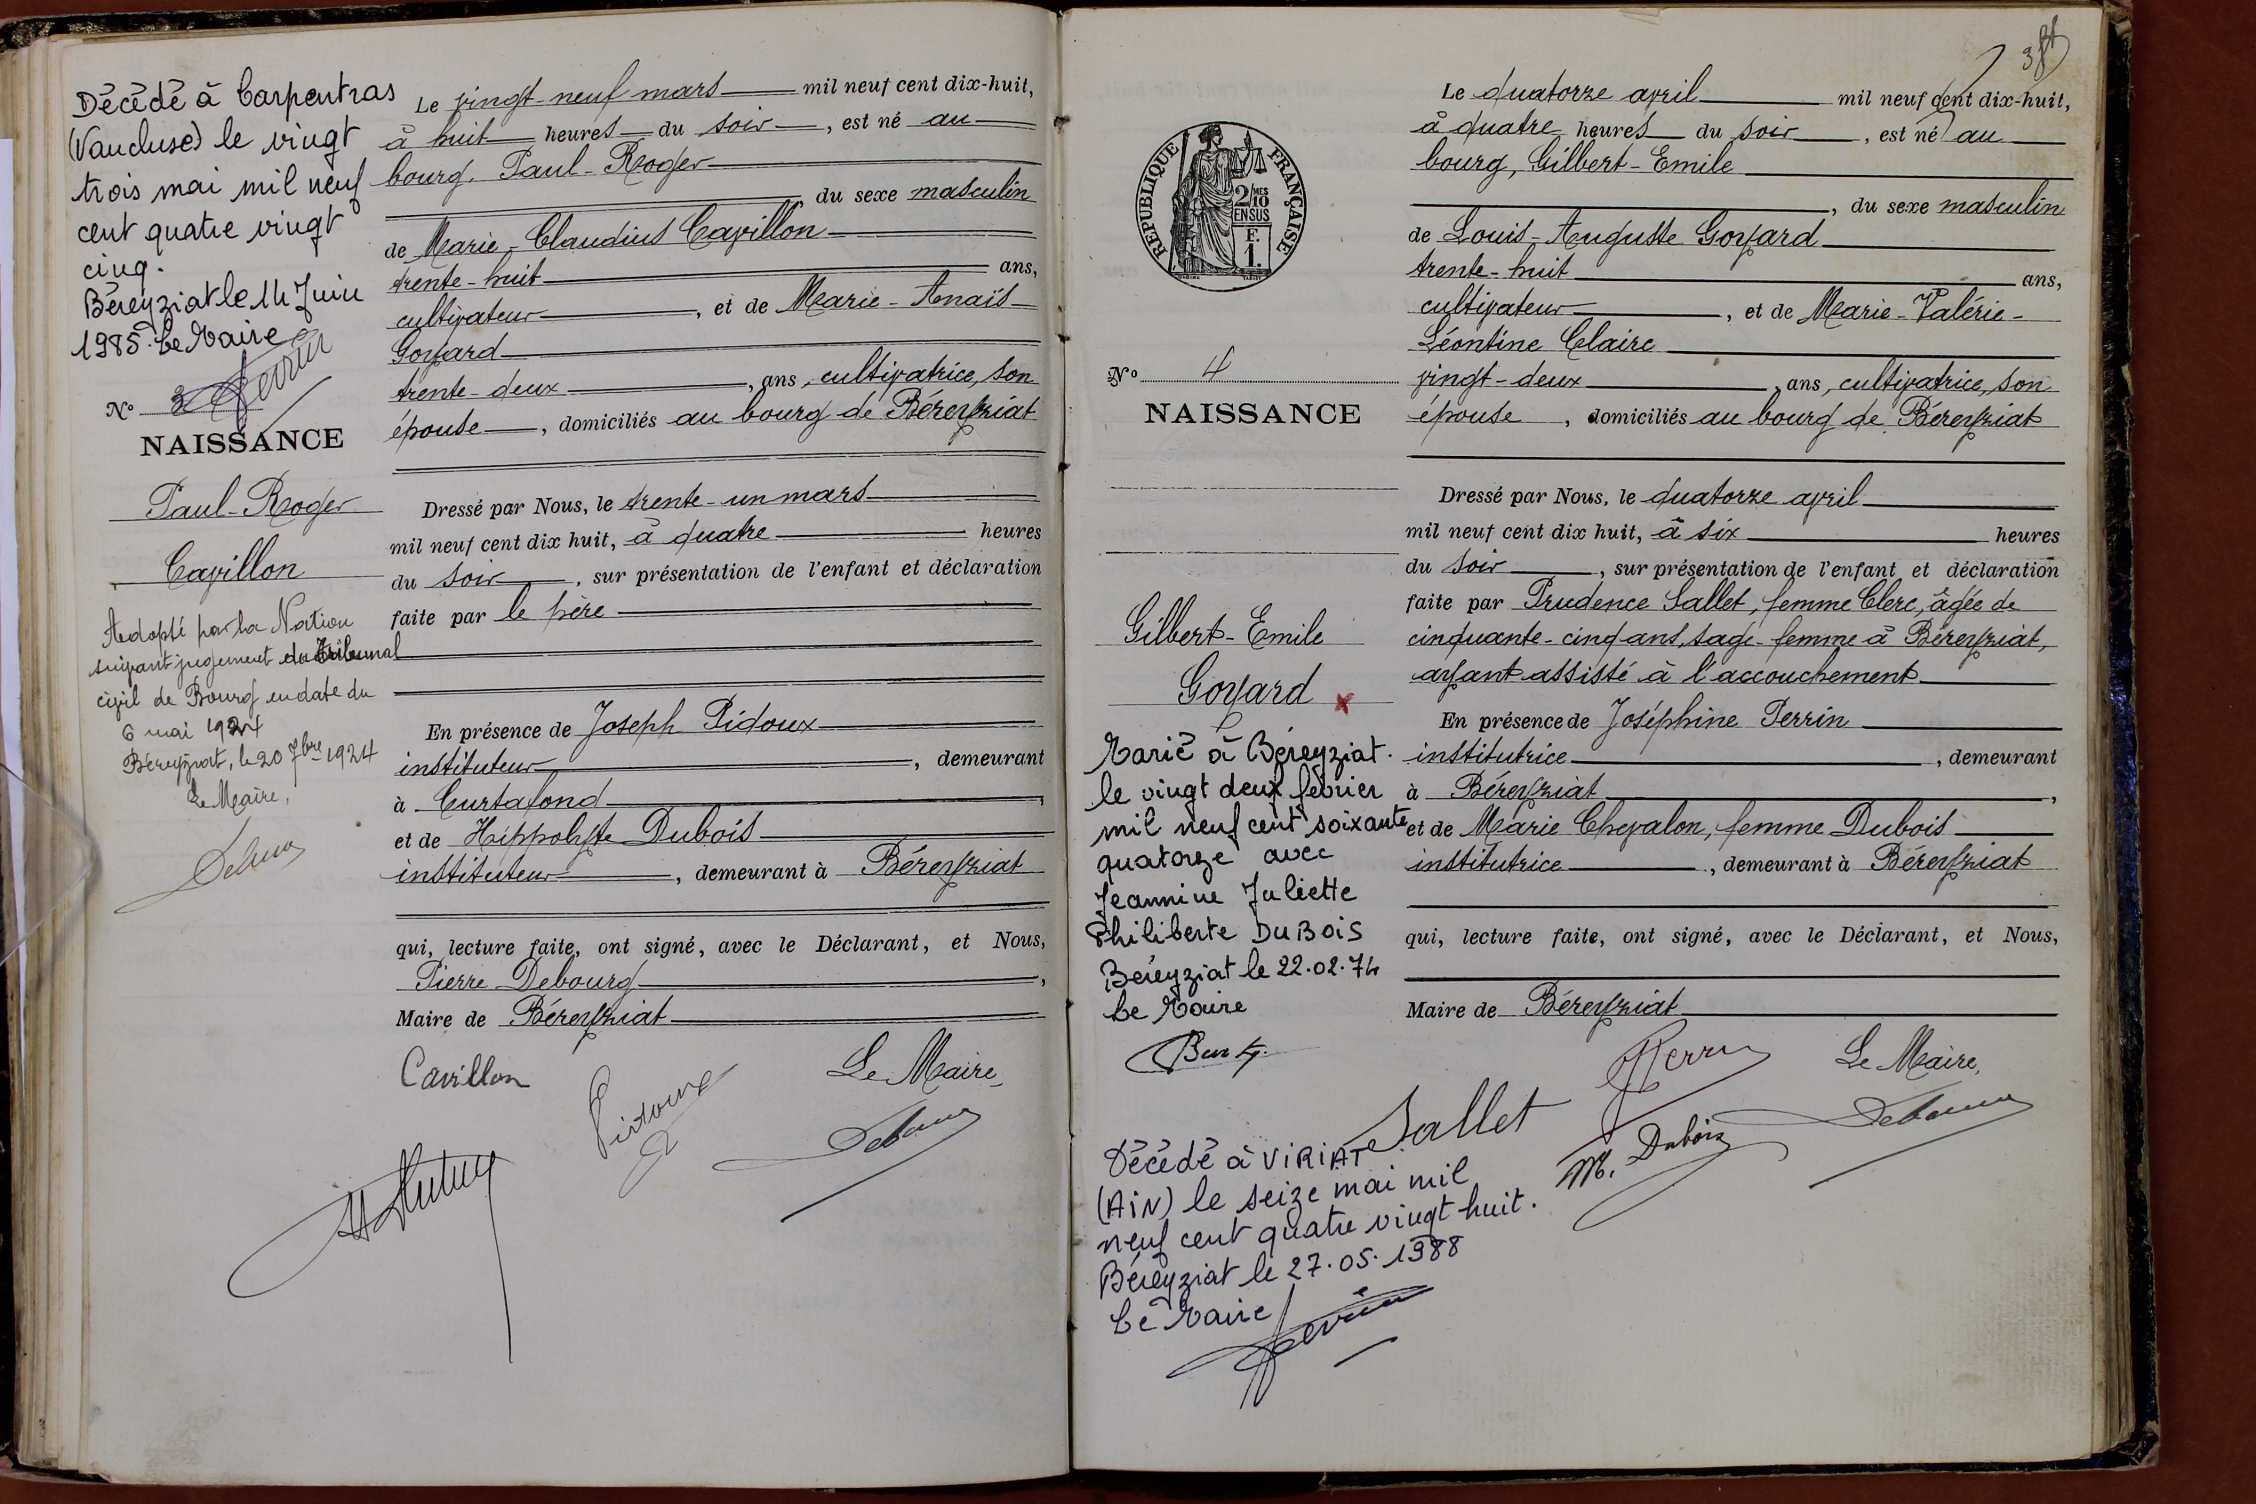 Décédé à Carpentras
(Vaucluse) le vingt
trois mai mil neuf
cent quatre vingt
cinq.
Béreyziat le 14 Juin
1985. Le Maire
No 3
NAISSANCE
Paul-Roger
Cavillon
Adopté par la Nation
suivant jugement du Tribunal
civil de Bourg en date du
6 mai 1924
Béreyziat, le 20 7bre 1924
Le Maire,
Le vingt-neuf mars mil neuf cent dix-huit,
à huit heures du soir, est né au
bourg. Paul-Roger
du sexe masculin
de Marie-Claudius Cavillon
trente-huit ans,
cultivateur, et de Marie-Anaïs
Goyard
trente-deux, ans, cultivatrice, son
épouse, domiciliés au bourg de Béreyziat
Dressé par Nous, le trente-un mars
mil neuf cent dix huit, à quatre heures
du soir, sur présentation de l'enfant et déclaration
faite par le père
En présence de Joseph Pidoux
instituteur, demeurant
à Curtafond,
et de Hippolyte Dubois
instituteur, demeurant à Béreyziat
qui, lecture faite, ont signé, avec le Déclarant, et Nous,
Pierre Debourg,
Maire de Béreyziat
Cavillon
Pidoux
Le Maire,
38
REPUBLIQUE FRANÇAISE
2/10 MES
EN SUS
F.
1.
No 4
NAISSANCE
Gilbert-Emile
Goyard
Marié à Béreyziat.
le vingt deux février
mil neuf cent soixante
quatorze avec
Jeannine Juliette
Philiberte DUBOIS
Béreyziat le 22.02.74
Le Maire
Décédé à VIRIAT
(AIN) le seize mai mil
neuf cent quatre vingt huit.
Béreyziat le 27.05.1988
Le Maire
Le quatorze avril mil neuf cent dix-huit,
à quatre heures du soir, est né au
bourg, Gilbert-Emile
, du sexe masculin
de Louis-Auguste Goyard
trente-huit ans,
cultivateur, et de Marie-Valérie-
Léontine Claire
vingt-deux, ans, cultivatrice, son
épouse, domiciliés au bourg de Béreyziat
Dressé par Nous, le quatorze avril
mil neuf cent dix huit, à six heures
du soir, sur présentation de l'enfant et déclaration
faite par Prudence Sallet, femme Clerc, âgée de
cinquante-cinq ans, sage-femme à Béreyziat,
ayant assisté à l'accouchement
En présence de Joséphine Perrin
institutrice, demeurant
à Béreyziat,
et de Marie Chevalon, femme Dubois
institutrice, demeurant à Béreyziat
qui, lecture faite, ont signé, avec le Déclarant, et Nous,
Maire de Béreyziat
Le Maire,
Sallet
M. Dubois